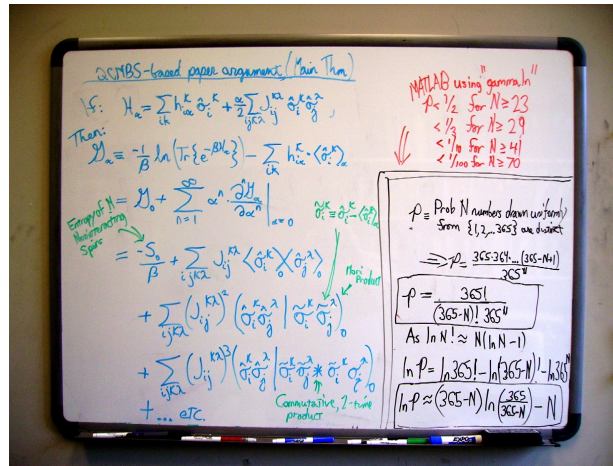 QCMBS-based paper argument (Main Thm)
If: H_α = Σ_{ik} h_{iα}^κ σ̂_i^κ + α/2 Σ_{ijκλ} J_{ij}^{κλ} σ̂_i^κ σ̂_j^λ ,
Then:
G_α ≡ -1/β ln(Tr{e^{-βH_α}}) - Σ_{ik} h_{iα}^κ · ⟨σ̂_i^κ⟩_α
= G_0 + Σ_{n=1}^∞ α^n · ∂^n G_α / ∂α^n |_{α=0}
σ̃_i^κ ≡ σ̂_i^κ - ⟨σ̂_i^κ⟩_α
Entropy of N
Noninteracting
Spins
= -S_0/β + Σ_{ijκλ} J_{ij}^{κλ} ⟨σ̂_i^κ⟩⟨σ̂_j^λ⟩_0
Mori Product
+ Σ_{ijκλ} (J_{ij}^{κλ})^2 (σ̂_i^κ σ̂_j^λ | σ̃_i^κ σ̃_j^λ)_0
+ Σ_{ijκλ} (J_{ij}^{κλ})^3 (σ̂_i^κ σ̂_j^λ | σ̃_i^κ σ̃_j^λ * σ̃_i^κ σ̃_j^λ)_0
+ ... etc.
Commutative, 2-time
product
MATLAB using "gammaln"
P < 1/2 for N ≥ 23
< 1/3 for N ≥ 29
< 1/10 for N ≥ 41
< 1/100 for N ≥ 70
P ≡ Prob N numbers drawn uniformly
from {1,2,...365} are distinct
⇒ P = 365·364·...·(365-N+1) / 365^N
P = 365! / (365-N)! 365^N
As ln N! ≈ N(ln N - 1)
ln P = ln 365! - ln(365-N)! - ln 365^N
ln P ≈ (365-N) ln(365/365-N) - N
EXPO